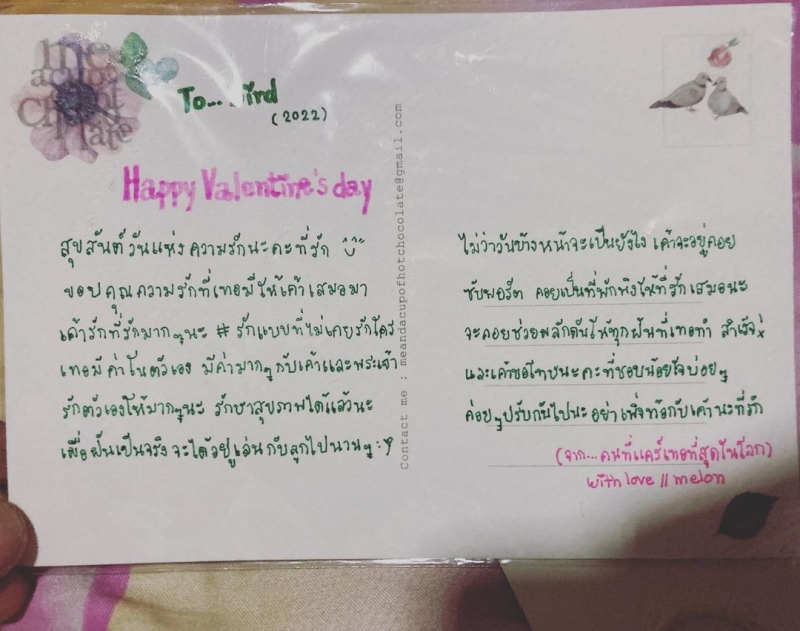 me
a cup of
hot
Chocolate
To... Bird
(2022)
Happy Valentine's day
สุขสันต์วันแห่งความรักนะคะที่รัก
ขอบคุณความรักที่เทอมีให้เค้าเสมอมา
เค้ารักที่รักมากๆนะ #รักแบบที่ไม่เคยรักใคร
เทอมีค่าในตัวเอง มีค่ามากๆกับเค้าและพระเจ้า
รักตัวเองให้มากๆนะ รักษาสุขภาพได้แล้วนะ
เผื่อฝันเป็นจริงจะได้อยู่เล่นกับลูกไปนานๆ :)
Contact me : meandacupofhotchocolate@gmail.com
ไม่ว่าวันข้างหน้าจะเป็นยังไง เค้าจะอยู่คอย
ซัพพอร์ต คอยเป็นที่พักพิงให้ที่รักเสมอนะ
จะคอยช่วยผลักดันให้ทุกฝันที่เทอทำ สำเร็จ
และเค้าขอโทษนะคะที่ชอบน้อยใจบ่อยๆ
ค่อยๆปรับกันไปนะอย่าเพิ่งท้อกับเค้านะที่รัก
(จาก... คนที่แคร์เทอที่สุดในโลก)
with love || melon